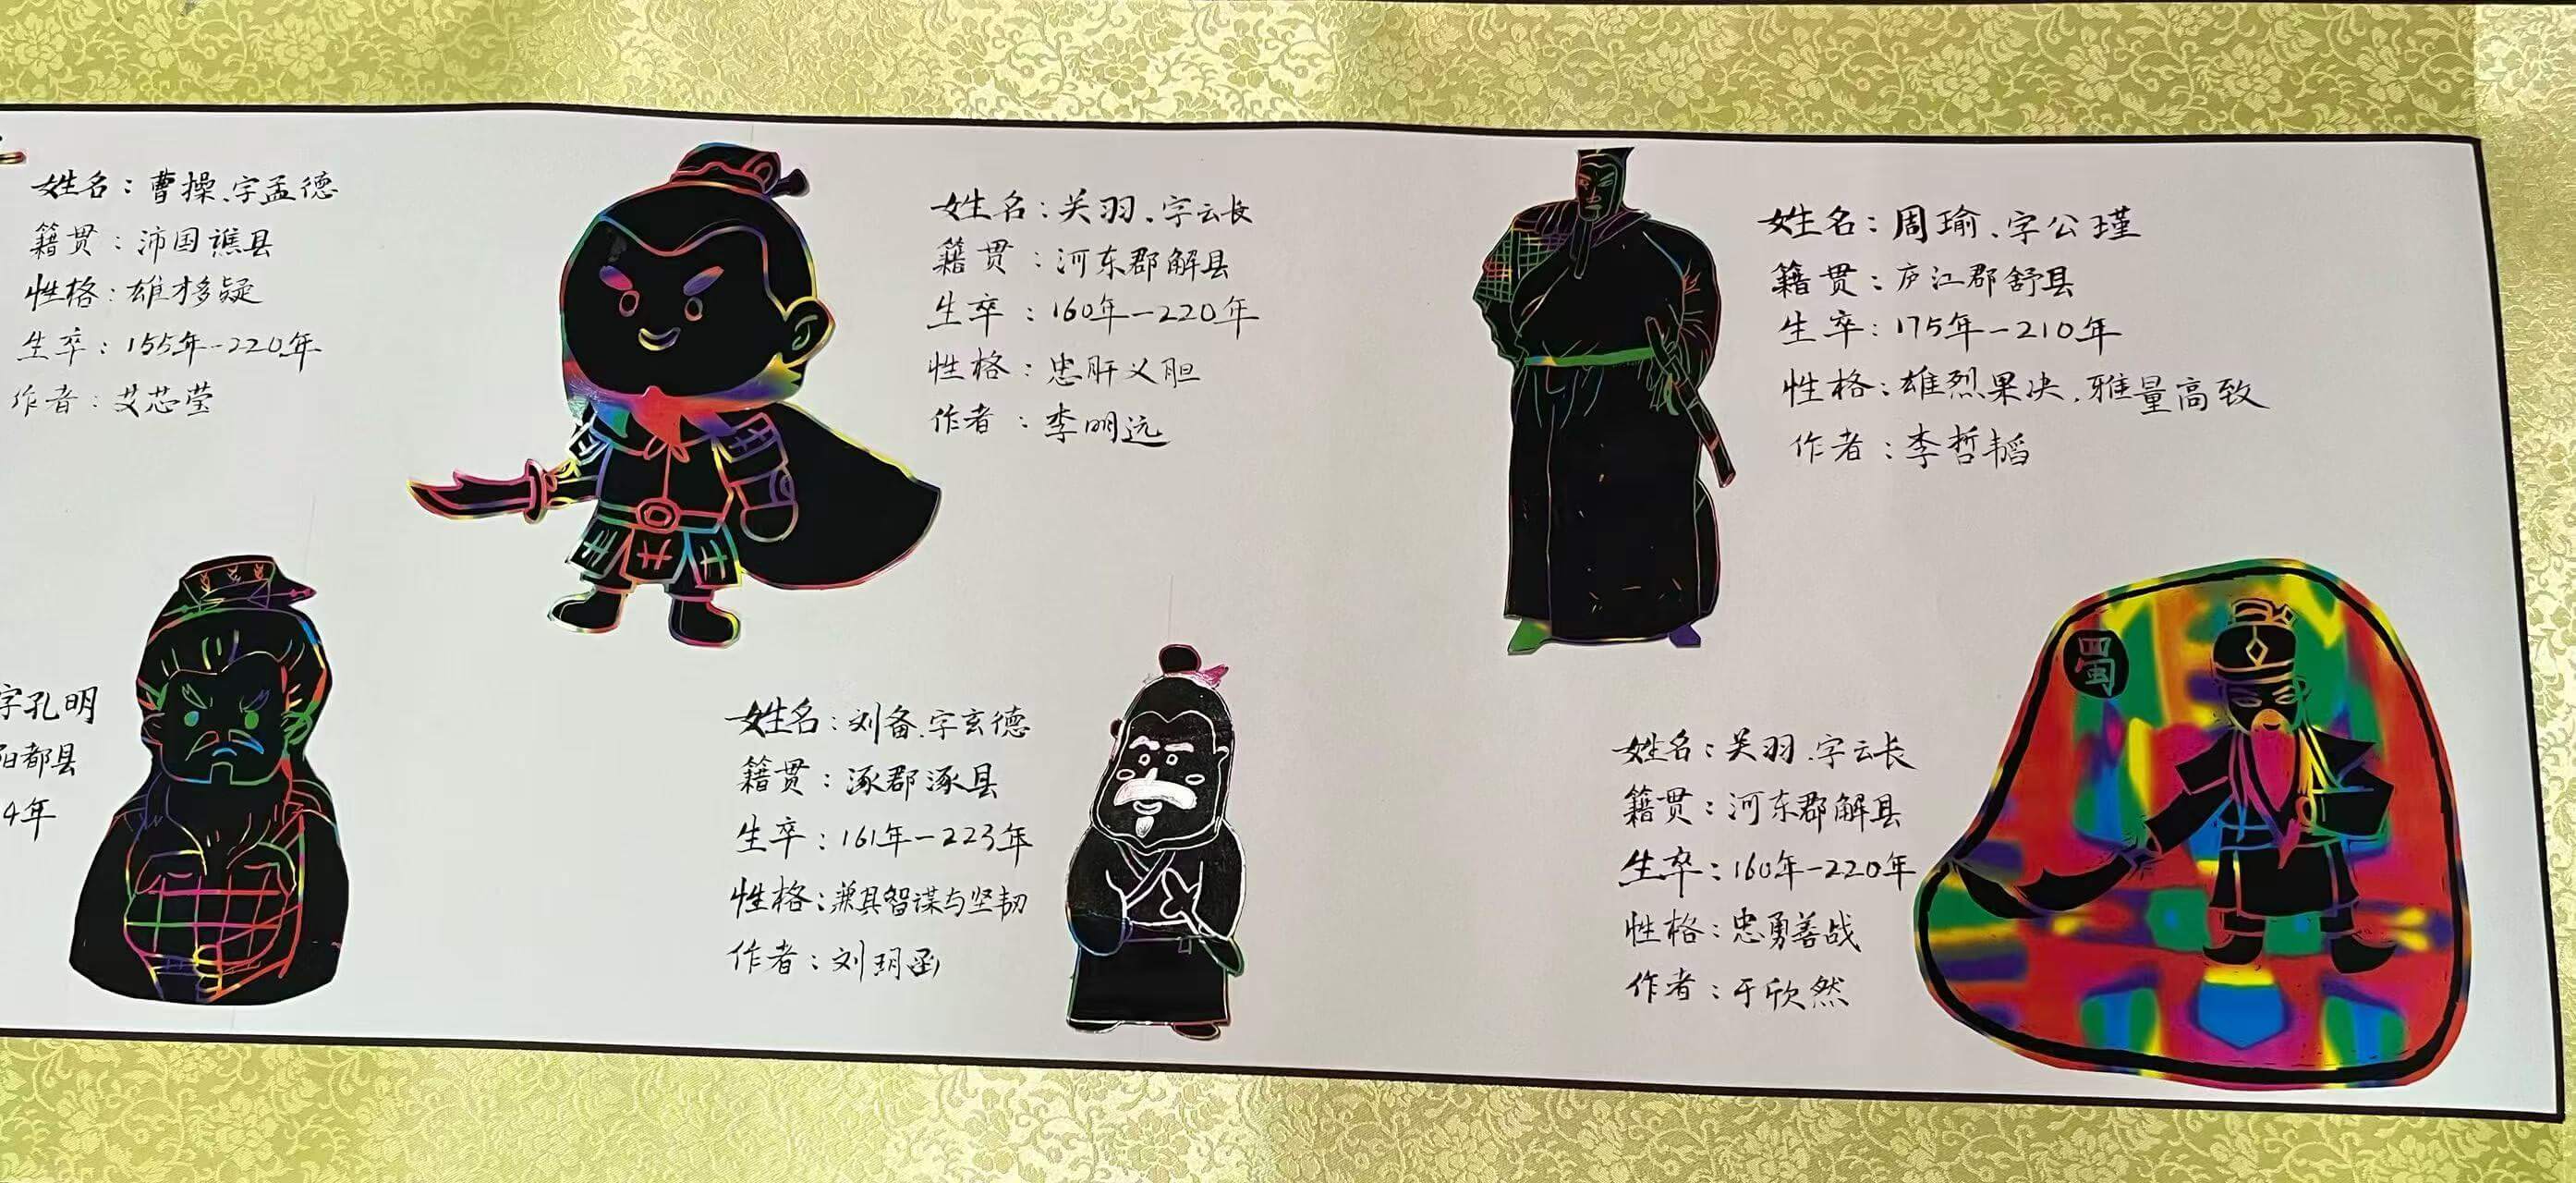 姓名：曹操、字孟德
籍贯：沛国谯县
性格：雄才多疑
生卒：155年-220年
作者：艾芯莹
姓名：关羽、字云长
籍贯：河东郡解县
生卒：160年-220年
性格：忠肝义胆
作者：李明远
姓名：周瑜、字公瑾
籍贯：庐江郡舒县
生卒：175年-210年
性格：雄烈果决、雅量高致
作者：李哲韬
字孔明
阳都县
4年
姓名：刘备、字玄德
籍贯：涿郡涿县
生卒：161年-223年
性格：兼具智谋与坚韧
作者：刘玥函
姓名：关羽、字云长
籍贯：河东郡解县
生卒：160年-220年
性格：忠勇善战
作者：于欣然
蜀